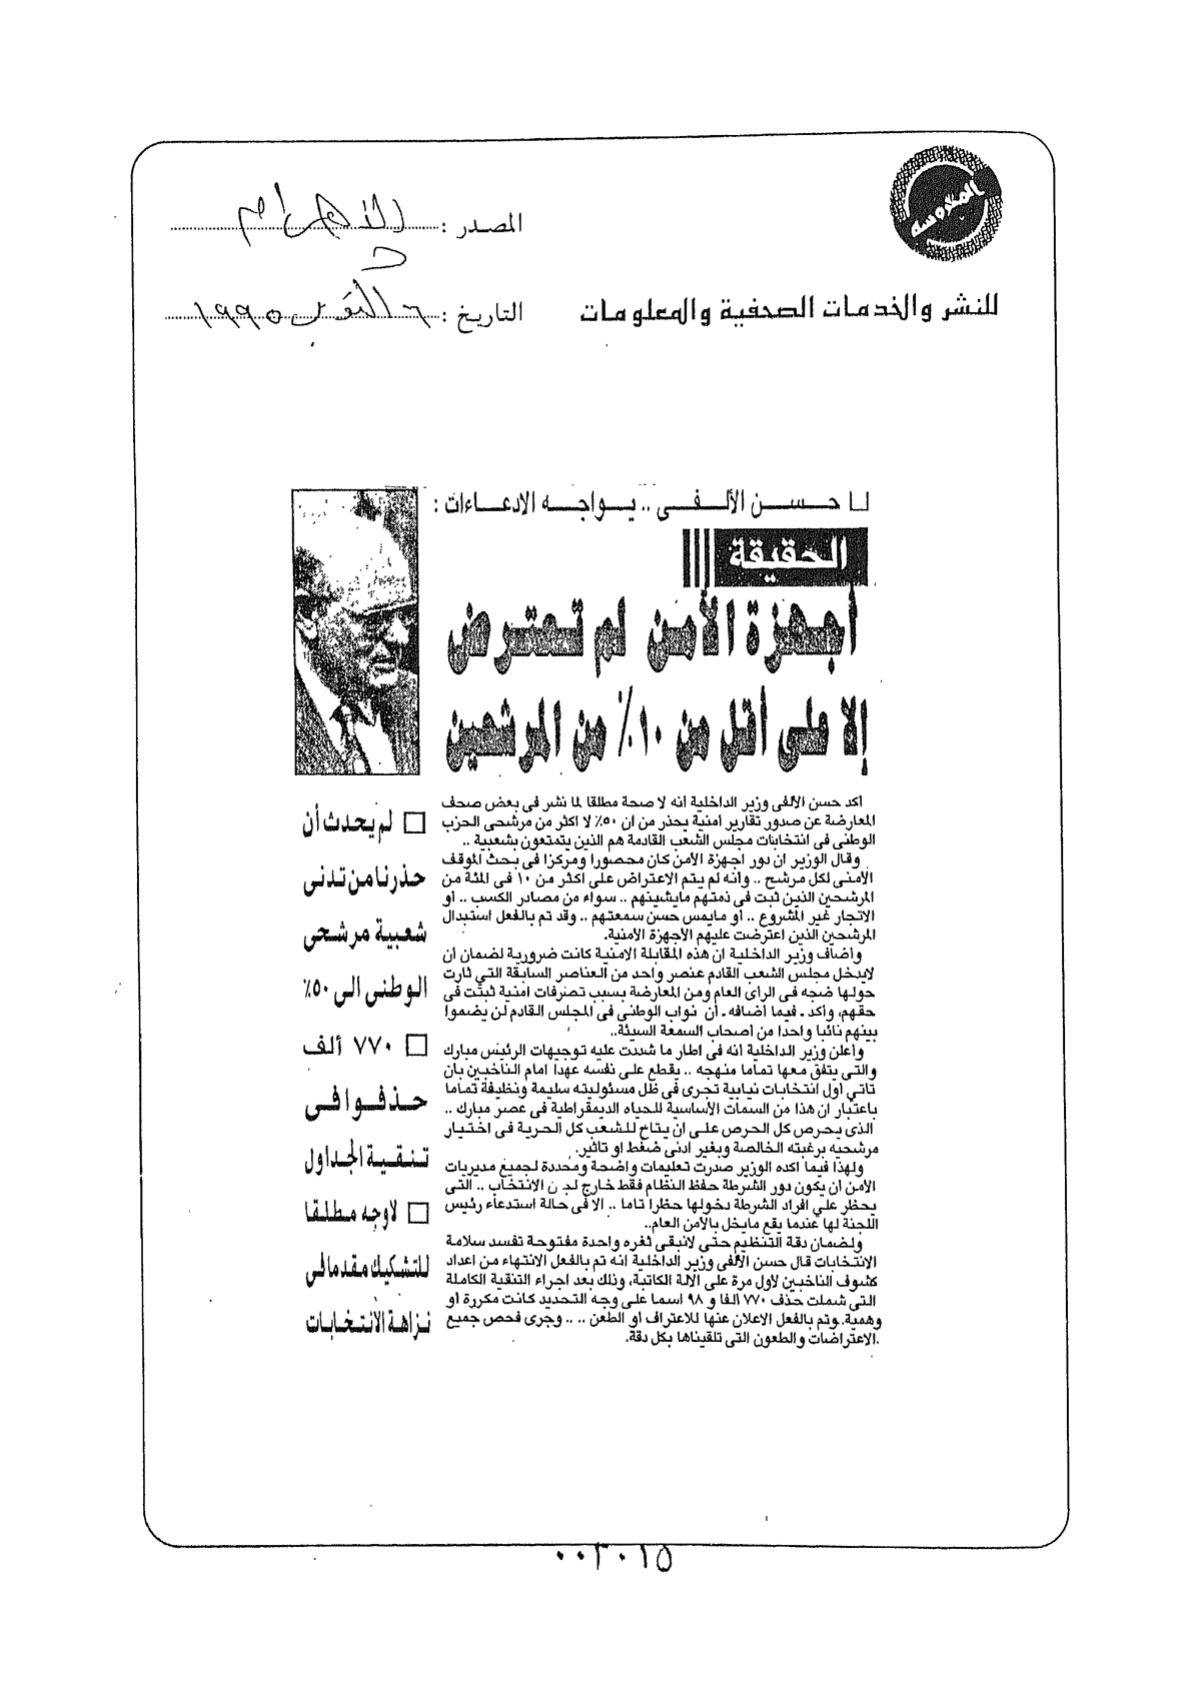 المدروسه
المصدر : الأهرام
للنشر والخدمات الصحفية والمعلومات
التاريخ : ٦ أكتوبر ١٩٩٥
حسن الألفى .. يواجه الادعاءات :
الحقيقة
أجهزة الأمن لم تعترض
إلا على أقل من ١٠٪ من المرشحين
اكد حسن الألفى وزير الداخلية انه لا صحة مطلقا لما نشر فى بعض صحف
المعارضة عن صدور تقارير امنية يحذر من ان ٥٠٪ لا اكثر من مرشحى الحزب
الوطنى فى انتخابات مجلس الشعب القادمة هم الذين يتمتعون بشعبية ..
وقال الوزير ان دور اجهزة الأمن كان محصورا ومركزا فى بحث الموقف
الأمنى لكل مرشح .. وانه لم يتم الاعتراض على اكثر من ١٠ فى المئة من
المرشحين الذين ثبت فى ذمتهم مايشينهم .. سواء من مصادر الكسب .. او
الاتجار غير المشروع .. أو مايمس حسن سمعتهم .. وقد تم بالفعل استبدال
المرشحين الذين اعترضت عليهم الأجهزة الأمنية.
واضاف وزير الداخلية ان هذه المقابلة الامنية كانت ضرورية لضمان ان
لايدخل مجلس الشعب القادم عنصر واحد من العناصر السابقة التي ثارت
حولها ضجه فى الراى العام ومن المعارضة بسبب تصرفات امنية ثبتت فى
حقهم، واكد ـ فيما اضافه ـ أن نواب الوطنى فى المجلس القادم لن يضموا
بينهم نائبا واحدا من أصحاب السمعة السيئة..
وأعلن وزير الداخلية انه فى اطار ما شددت عليه توجيهات الرئيس مبارك
والتى يتفق معها تماما منهجه .. يقطع على نفسه عهدا امام الناخبين بأن
تاتى أول انتخابات نيابية تجرى فى ظل مسئوليته سليمة ونظيفة تماما
باعتبار ان هذا من السمات الأساسية للحياه الديمقراطية فى عصر مبارك ..
الذى يحرص كل الحرص على ان يتاح للشعب كل الحرية فى اختيار
مرشحيه برغبته الخالصة وبغير ادنى ضغط او تاثير.
ولهذا فيما اكده الوزير صدرت تعليمات واضحة ومحددة لجميع مديريات
الأمن أن يكون دور الشرطة حفظ النظام فقط خارج لجان الانتخاب .. التى
يحظر على افراد الشرطة دخولها حظرا تاما .. الا فى حالة استدعاء رئيس
اللجنة لها عندما يقع مايخل بالأمن العام..
ولضمان دقة التنظيم حتى لاتبقى ثغره واحدة مفتوحة تفسد سلامة
الانتخابات قال حسن الألفى وزير الداخلية انه تم بالفعل الانتهاء من اعداد
كشوف الناخبين لأول مرة على الآلة الكاتبة، وذلك بعد اجراء التنقية الكاملة
التى شملت حذف ٧٧٠ الفا و ٩٨ اسما على وجه التحديد كانت مكررة أو
وهمية. وتم بالفعل الاعلان عنها للاعتراف او الطعن .. .. وجرى فحص جميع
الاعتراضات والطعون التى تلقيناها بكل دقة.
□ لم يحدث أن
حذرنا من تدنى
شعبية مرشحى
الوطنى الى ٥٠٪
□ ٧٧٠ ألف
حذفوا فى
تنقية الجداول
□ لاوجه مطلقا
للتشكيك مقدما فى
نزاهة الانتخابات
٠٠٣٠١٥